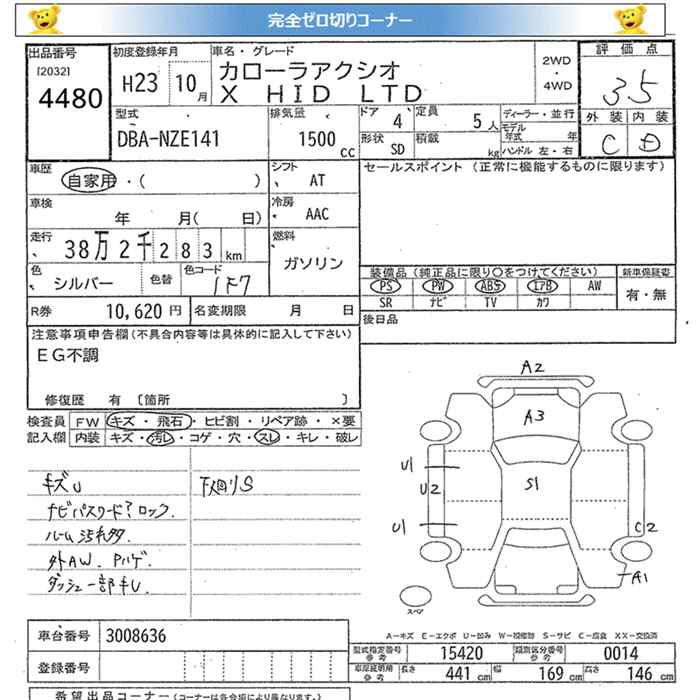 完全ゼロ切りコーナー
出品番号 初度登録年月 車名・グレード 評価点
[2032] 4480 H23 10月 カローラアクシオ 2WD・4WD 3.5
X HID LTD
型式 排気量 ドア 4 定員 5人 ディーラー・並行 外装 内装
DBA-NZE141 1500cc 形状 SD 積載 kg モデル年式 年 ハンドル 左・右 C D
車歴 自家用・( ) シフト AT セールスポイント (正常に機能するものに限ります)
車検 年 月( 日) 冷房 AAC
走行 38万2千283km 燃料 ガソリン
色 シルバー 色替 色コード 1F7 装備品 (純正品に限り○をつけてください) 新車保証書
PS PW ABS エアB AW 有・無
SR ナビ TV カワ
R券 10,620円 名変期限 月 日 後日品
注意事項申告欄 (不具合内容等は具体的に記入して下さい)
EG不調
修復歴 有 [箇所 ]
検査員 FW キズ・飛石・ヒビ割・リペア跡・×要
記入欄 内装 キズ・汚レ・コゲ・穴・スレ・キレ・破レ
キズU 下廻りS
ナビパスワード?ロック.
ルーム汚れ多.
外AW. Pハゲ.
ダッシュ一部キU
A2
A3
U1
U2 S1
U1 C2
A1
スペア
A－キズ E－エクボ U－凹み W－補修跡 S－サビ C－腐食 XX－交換済
車台番号 3008636
型式指定番号 参考 15420 類別区分番号 参考 0014
登録番号 車庫証明用 参考 長さ 441 cm 幅 169 cm 高さ 146 cm
希望出品コーナー (コーナーは各会場により異なります。)